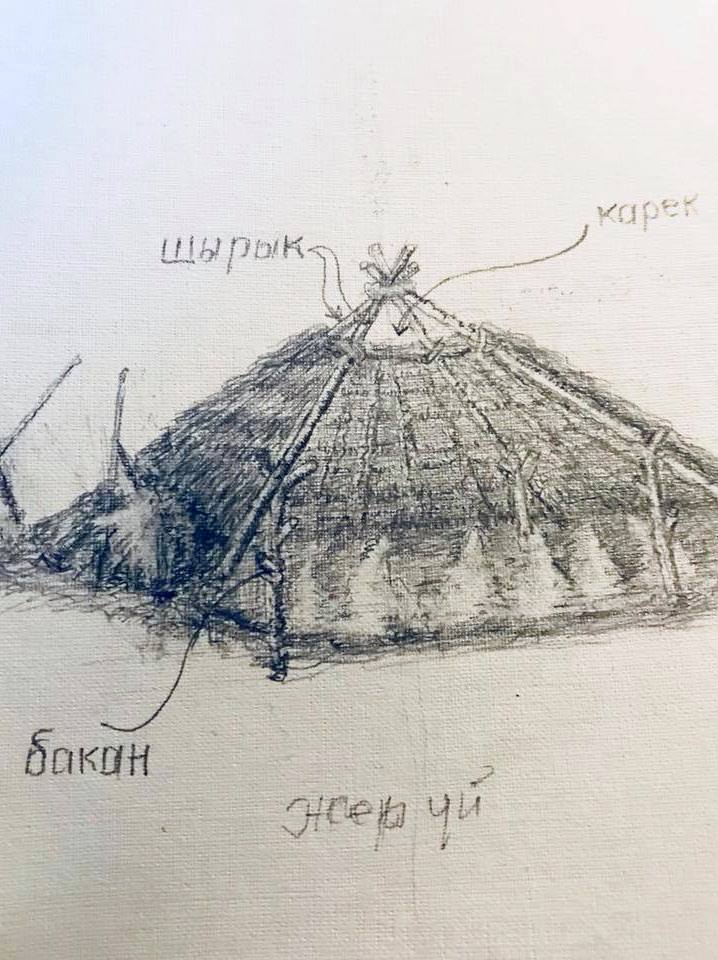 карек
щырык
бакан
жер үй